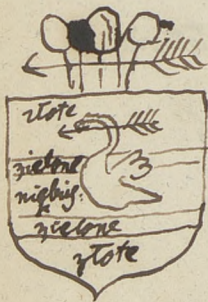 złote
zielone
niebies:
zielone
złote